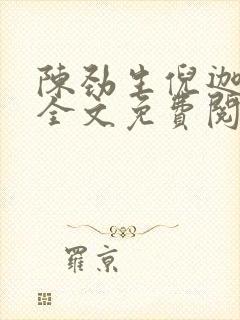 陳勁生倪迦
全文免費閱
羅京